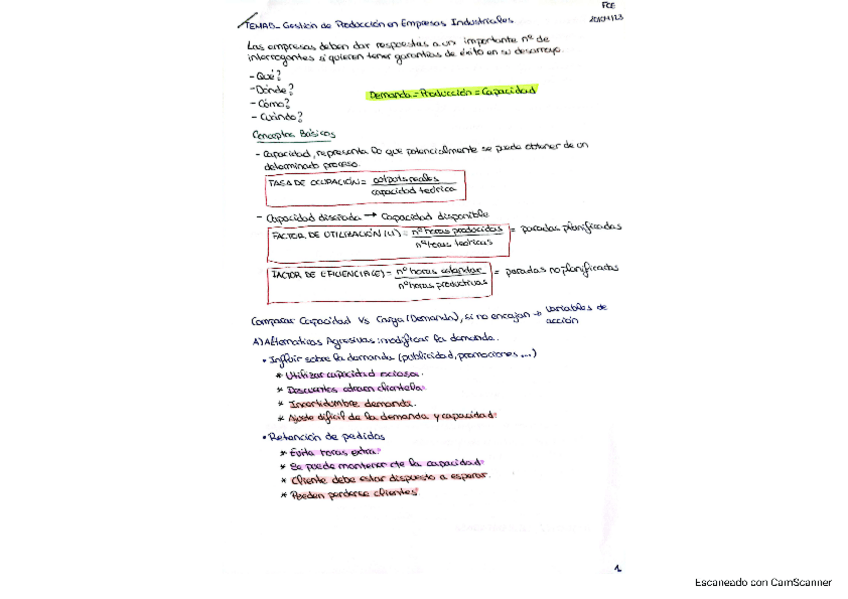 FCE
20/04/23
TEMA 5_ Gestión de Producción en Empresas Industriales
Las empresas deben dar respuestas a un importante nº de
interrogantes si quieren tener garantías de éxito en su desarrollo.
- Qué?
- Dónde?
- Cómo?
- Cuándo?
Demanda = Producción = Capacidad
Conceptos Básicos
- Capacidad, representa lo que potencialmente se puede obtener de un
determinado proceso.
TASA DE OCUPACIÓN = outputs reales
capacidad teórica
- Capacidad diseñada → Capacidad disponible
FACTOR DE UTILIZACIÓN (U) = nº horas producidas = paradas planificadas
nº horas teóricas
FACTOR DE EFICIENCIA (E) = nº horas estándar = paradas no planificadas
nº horas productivas
Comparar Capacidad Vs Carga (Demanda), si no encajan → variables de
acción
A) Alternativas Agresivas: modificar la demanda.
• Influir sobre la demanda (publicidad, promociones ...)
* Utilizar capacidad ociosa.
* Descuentos atraen clientela.
* Incertidumbre demanda.
* Ajuste difícil de la demanda y capacidad.
• Retención de pedidos
* Evita horas extra.
* Se puede mantener cte la capacidad.
* Cliente debe estar dispuesto a esperar.
* Pueden perderse clientes.
1
Escaneado con CamScanner